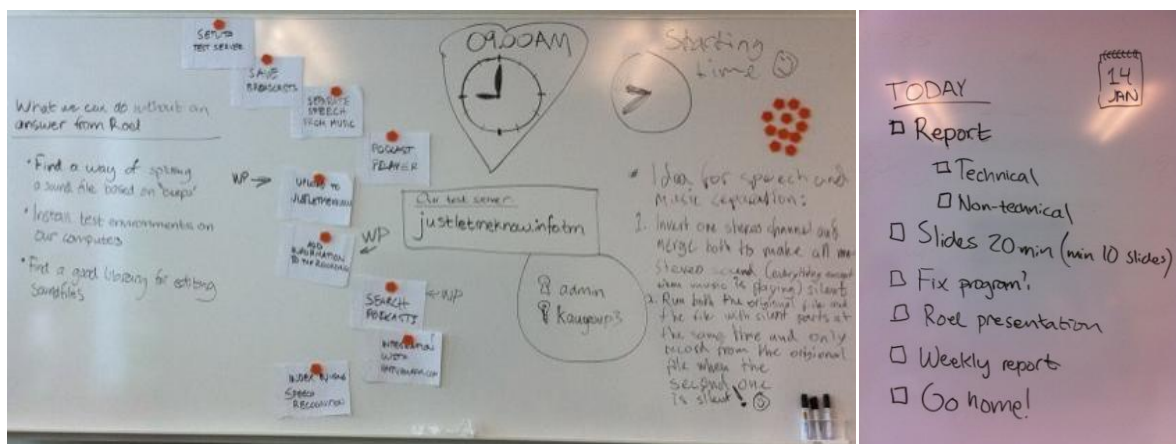 SETUP
TEST SERVER
SAVE
BROADCASTS
SEPARATE
SPEECH
FROM MUSIC
PODCAST
PLAYER
What we can do without an
answer from Roel
• Find a way of
a sound file based on
• Install test environments on
our computes
• Find a good library for editing
soundfiles
WP →
UPLOAD TO
ADD
INFORMATION
TO THE RECORDING
WP
SEARCH
PODCASTS
← WP
INTEGRATION
WITH
INDEX USING
SPEECH
RECOGNITION
09.00AM
Starting
time
Our test server
justletmeknow.infotm
admin
kaugroup3
* Idea for speech and
music separation:
1. Invert one stereo channel and
merge both to make all
stereo sound (everything except
when music is playing) silent
2. Run both the original file and
the file with silent parts at
the same time and only
record from the original
file when the
second one
is silent!
TODAY
14
JAN
□ Report
□ Technical
□ Non-technical
□ Slides 20 min (min 10 slides)
□ Fix program?
□ Roel presentation
□ Weekly report
□ Go home!